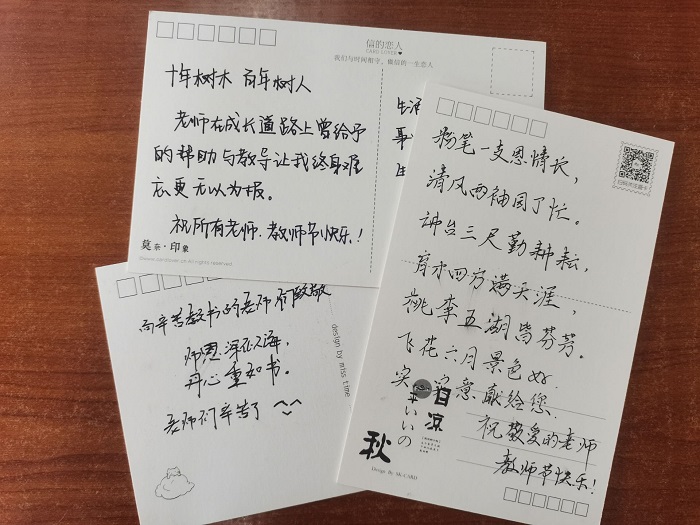 信的恋人
CARD LOVER
我们与时间和字，做信的一生恋人
十年树木 百年树人
老师在成长道路上曾给予
的帮助与教导让我终身难
忘更无以为报。
祝所有老师、教师节快乐！
莫奈·印象
生活
粉笔一支恩情长，
清风两袖园丁忙。
讲台三尺勤耕耘，
育才四方满天涯，
桃李五湖皆芬芳。
飞花六月景色好
意献给您、
祝敬爱的老师
教师节快乐！
白凉
いいの
秋
Design By MC-CARD
向辛苦教书的老师们致敬
师恩深似海，
丹心重如书。
老师们辛苦了
design by miss time